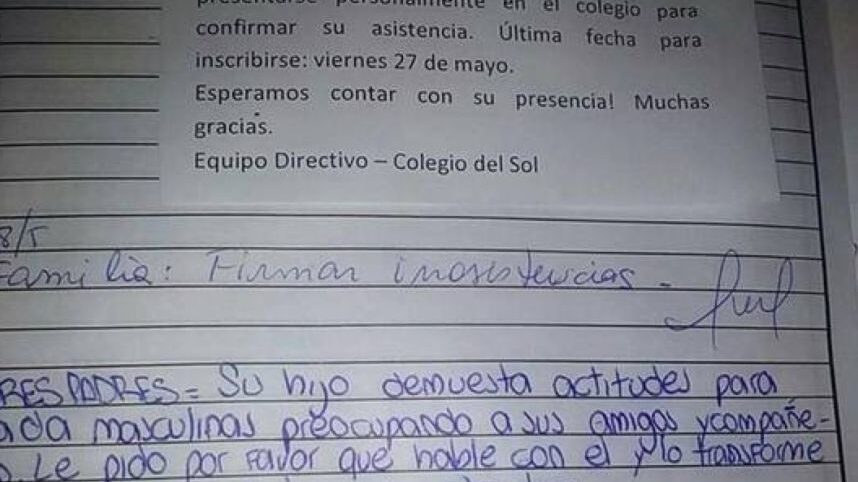 presentarse personalmente en el colegio para
confirmar su asistencia. Última fecha para
inscribirse: viernes 27 de mayo.
Esperamos contar con su presencia! Muchas
gracias.
Equipo Directivo – Colegio del Sol
8/5
Familia: Firmar inasistencias -
RES PADRES = Su hijo demuesta actitudes para
ada masculinas preocupando a sus amigos y compañe-
o. Le pido por favor que hable con el y lo transforme